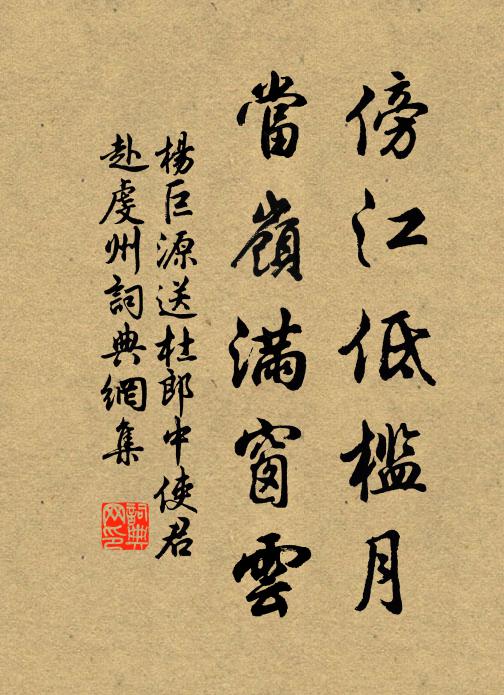 傍江低檻月
當嶺滿窗雲
楊巨源送杜郎中使君
赴虔州詞典網集
詞典
网印